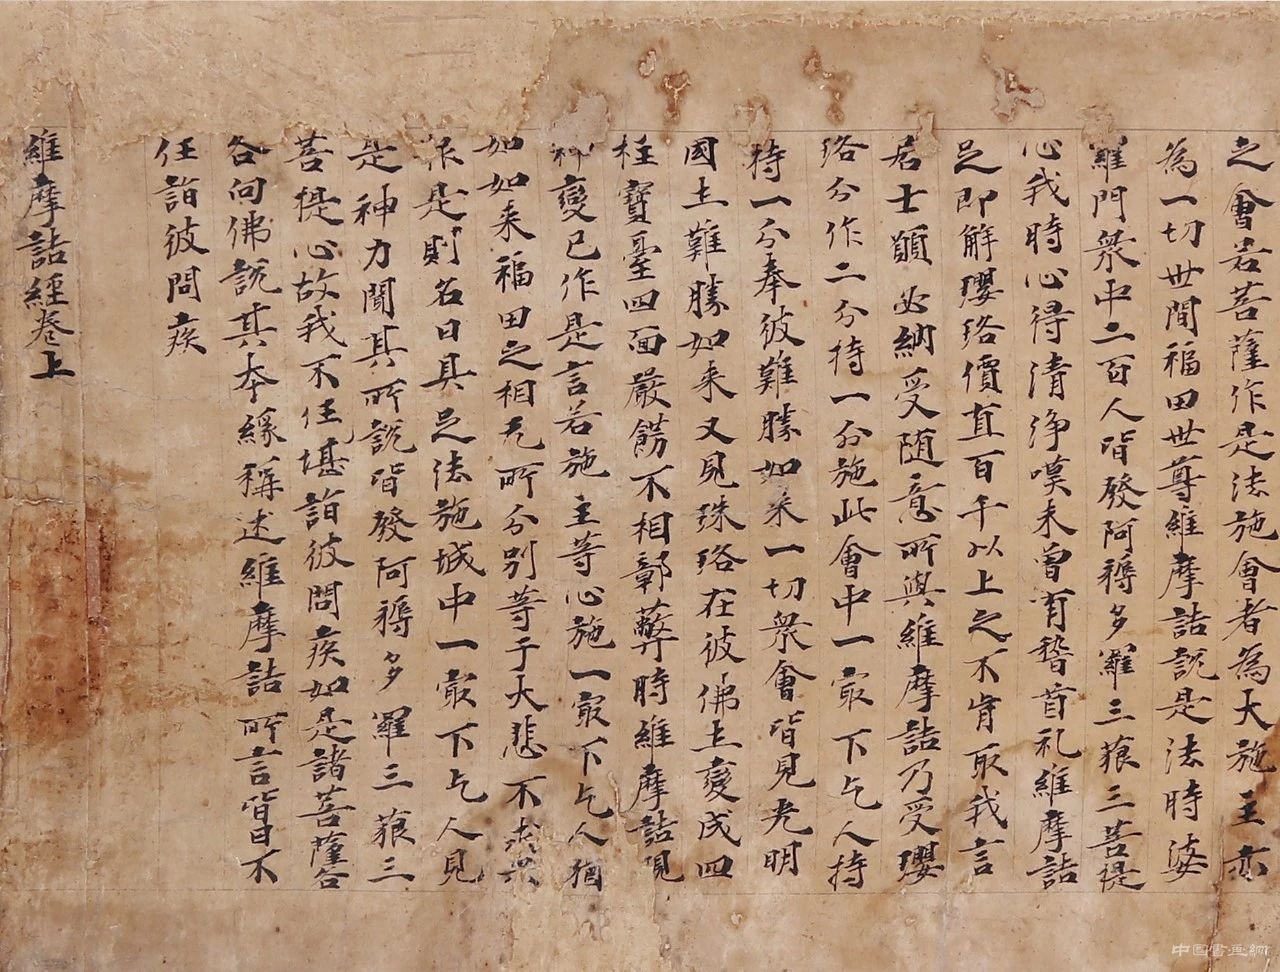 之會若菩薩作是法施會者為大施主亦
為一切世間福田世尊維摩詰說是法時婆
羅門衆中二百人皆發阿耨多羅三藐三菩提
心我時心得清淨嘆未曾有稽首礼維摩詰
足即解瓔珞價直百千以上之不肯取我言
居士願必納受随意所與維摩詰乃受瓔
珞分作二分持一分施此會中一㝡下乞人持
持一分奉彼難勝如来一切衆會皆見光明
國土難勝如来又見珠珞在彼佛土變成四
柱寶臺四面嚴餝不相鄣蔽時維摩詰現
神變已作是言若施主等心施一㝡下乞人猶
如如来福田之相无所分别等于大悲不求
作是則名曰具足法施城中一㝡下乞人見
是神力聞其所說皆發阿耨多羅三藐三
菩提心故我不任堪詣彼問疾如是諸菩薩各
各向佛說其本緣稱述維摩詰所言皆曰不
任詣彼問疾
維摩詰經卷上
中国書画網